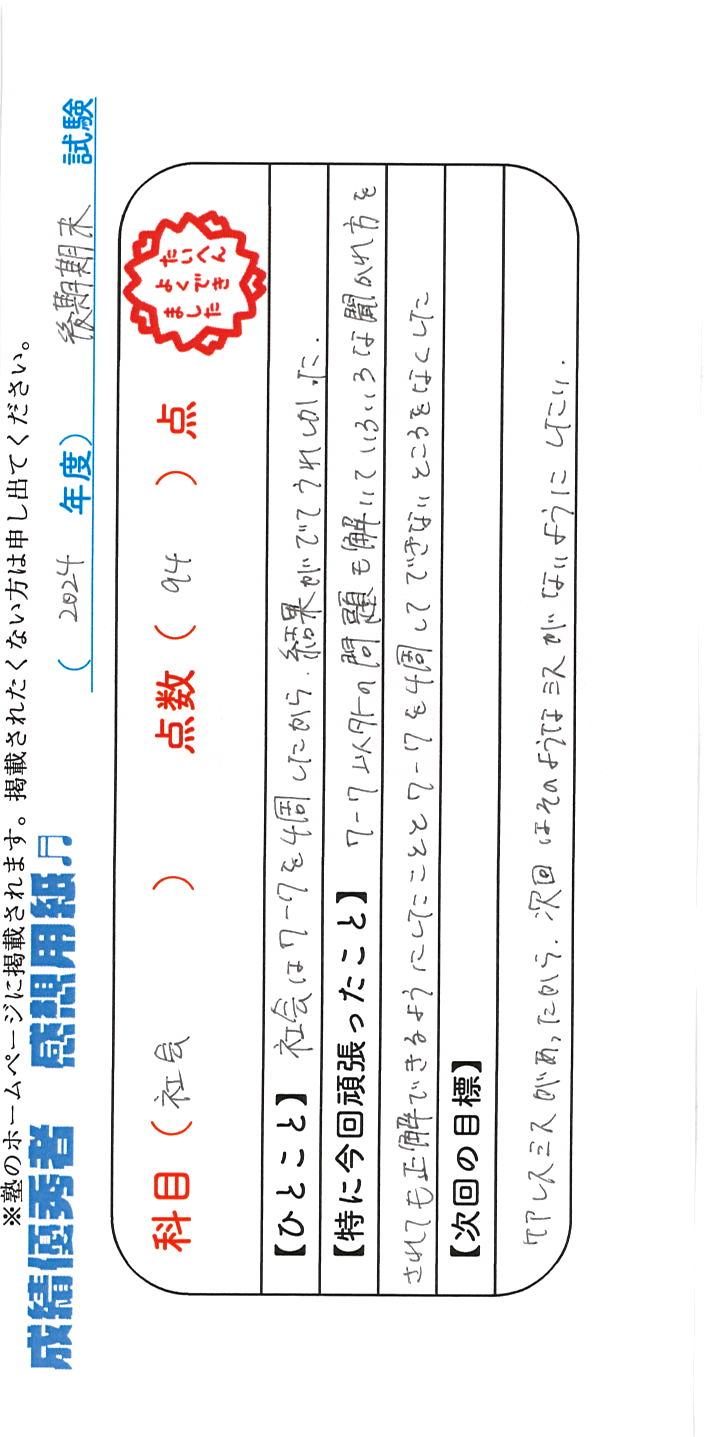 ※塾のホームページに掲載されます。掲載されたくない方は申し出てください。
成績優秀者 感想用紙♬ ( 2024 年度) 後期期末 試験
科目 ( 社会 ) 点数 ( 94 ) 点
たいへん
よくでき
ました
【ひとこと】 社会はワークを4周したから、結果がでてうれしかった.
【特に今回頑張ったこと】 ワーク以外の問題も解いていろいろな聞かれ方を
されても正解できるようにしたこととワークを4周してできないところをなくした
【次回の目標】
ケアレスミスがあったから、次回はそのようなミスがないようにしたい.